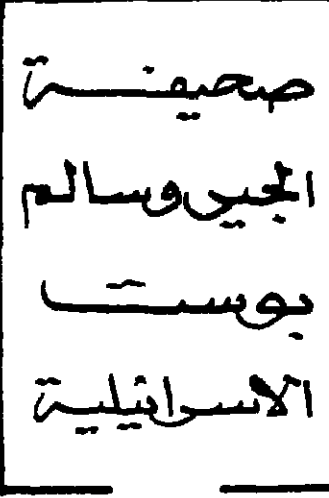 صحيفة
الجيروسالم
بوست
الاسرائيلية